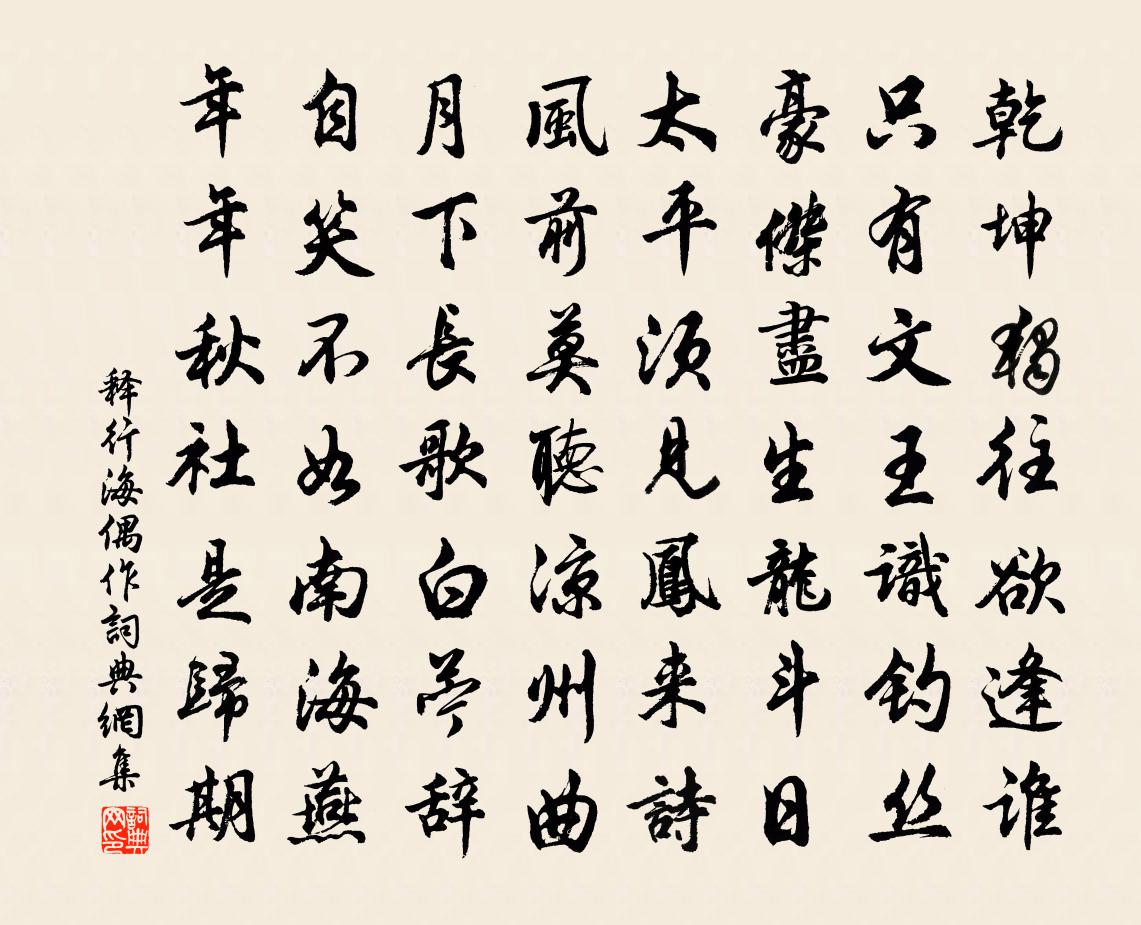 乾坤獨往欲逢谁
只有文王識钓丝
豪傑盡生龍斗日
太平须見鳳来詩
風前莫聽涼州曲
月下長歌白苎辞
自笑不如南海燕
年年秋社是歸期
释行海偶作詞典網集
詞典网印